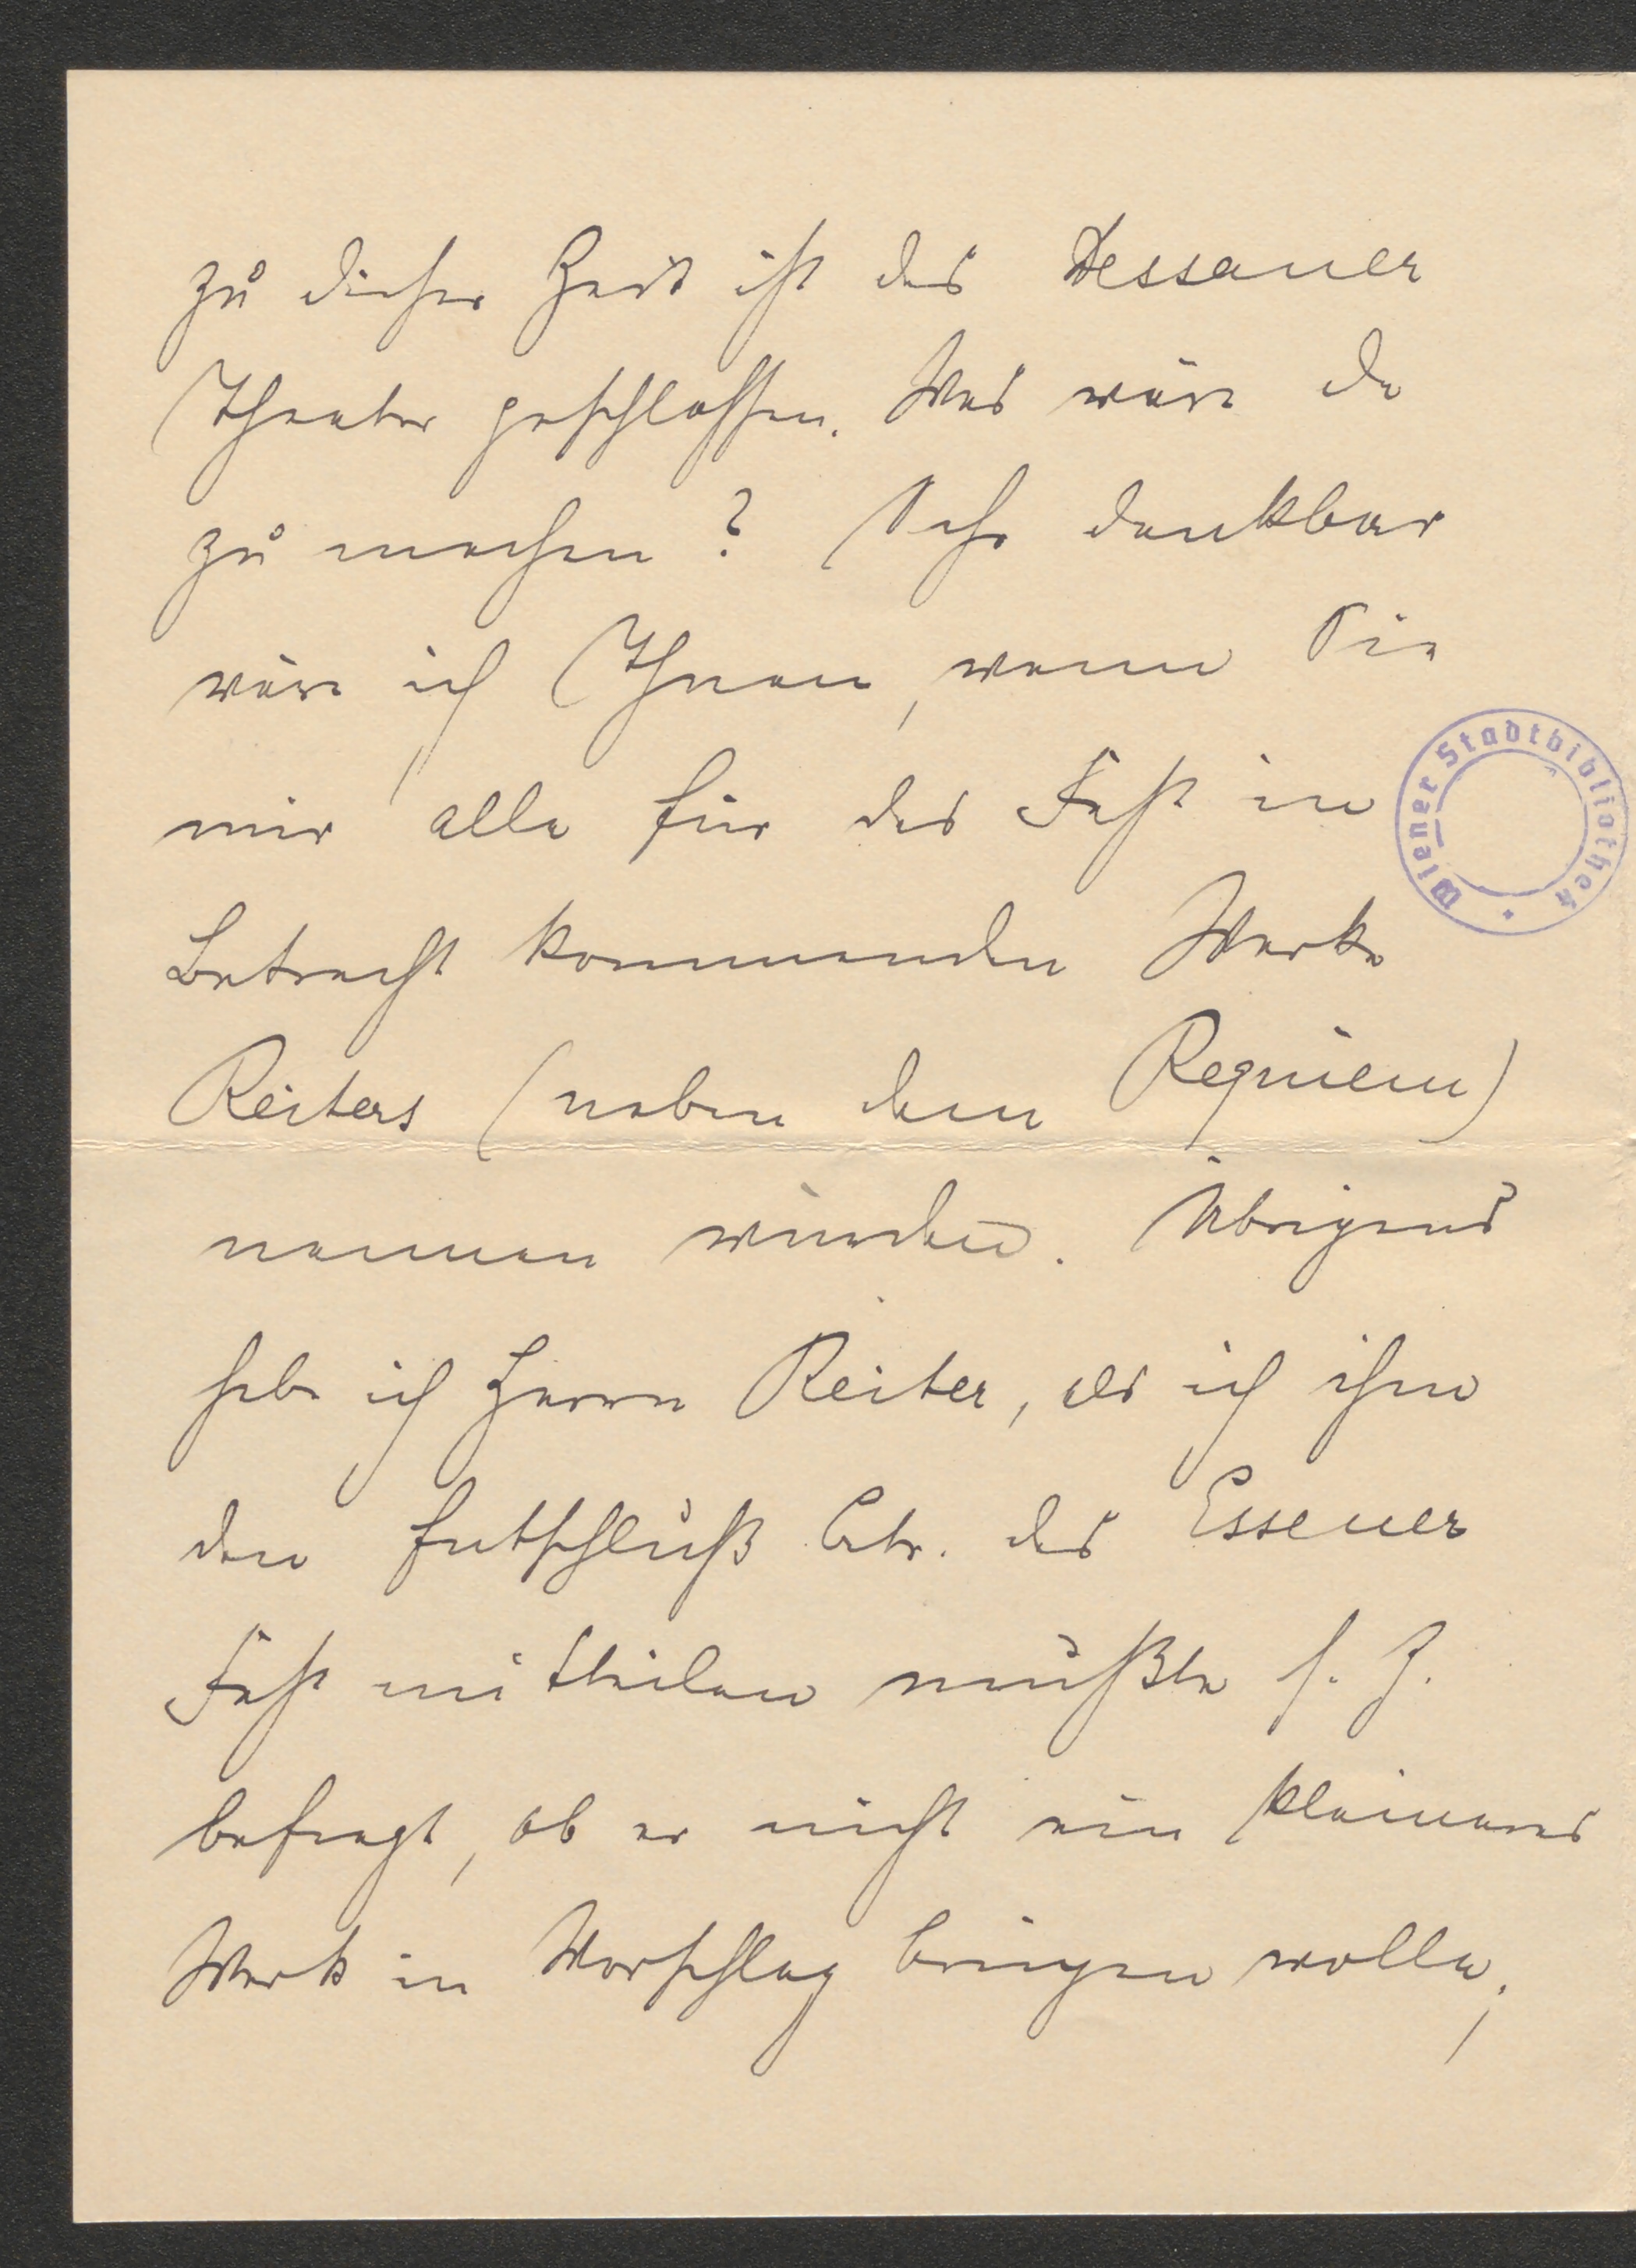 zu dieser Zeit ist das Dessauer
Theater geschlossen. Was wäre da
zu machen? Sehr dankbar
wäre ich Ihnen, wenn Sie
mir alle für das Fest in
Betracht kommenden Werke
Reiters (neben dem Requiem)
nennen würden. Übrigens
habe ich Herrn Reiter, als ich ihm
den Entschluß betr. das Essener
Fest mittheilen mußte s. Z.
befragt, ob er nicht ein kleineres
Werk in Vorschlag bringen wolle;
Wiener Stadtbibliothek